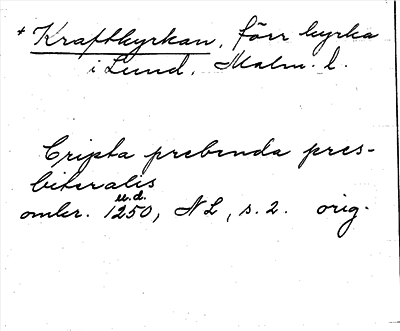 + Kraftkyrkan, förr kyrka
i Lund, Malm. l.
Cripta prebenda pres-
biteralis
u.d.
omkr. 1250, NL, s. 2. orig.